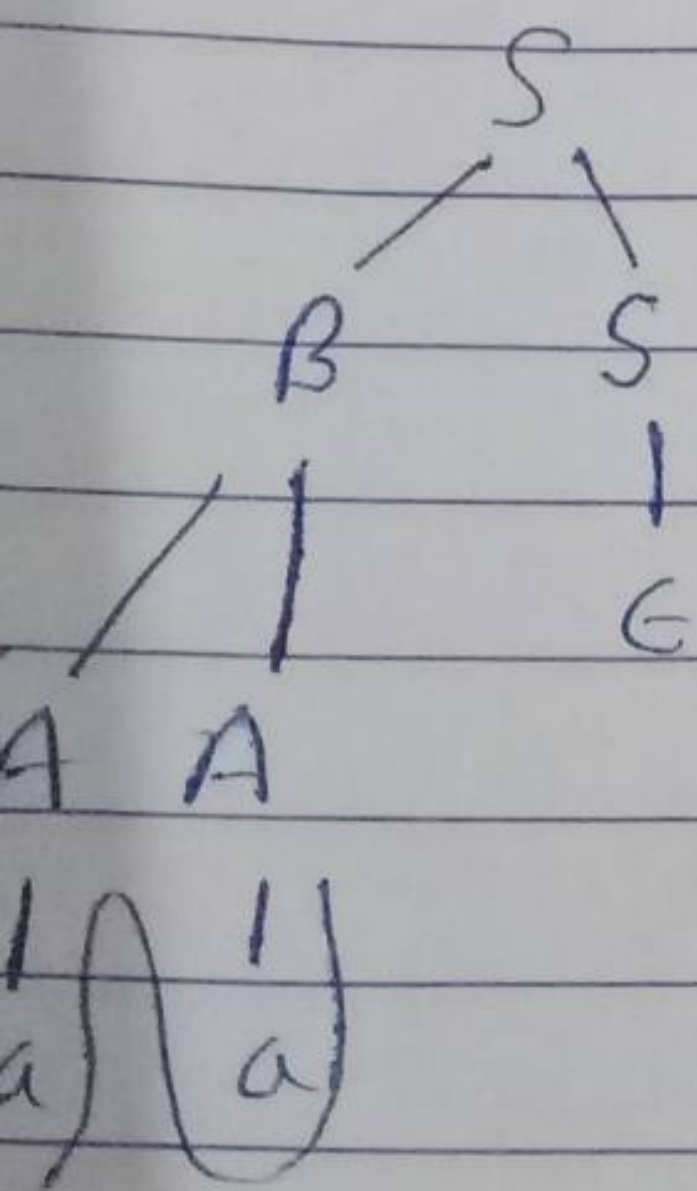 S
B S
ϵ
A A
a a